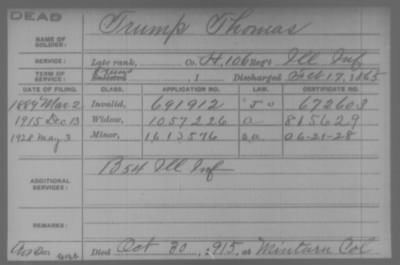 DEAD
NAME OF SOLDIER: Trump Thomas
SERVICE: Late rank, Co. H, 106 Reg't Ill Inf
TERM OF SERVICE: , 1 Discharged Feb 17, 1865
DATE OF FILING. CLASS. APPLICATION NO. LAW. CERTIFICATE NO.
1889 Mar 2 Invalid, 691912 672603
1915 Dec 13 Widow, 1057226 a 815629
1928 May 3 Minor, 1613576 a.a. a 6-21-28
ADDITIONAL SERVICES: B 54 Ill Inf
REMARKS:
Died Oct 30, 1915, at Minturn Col